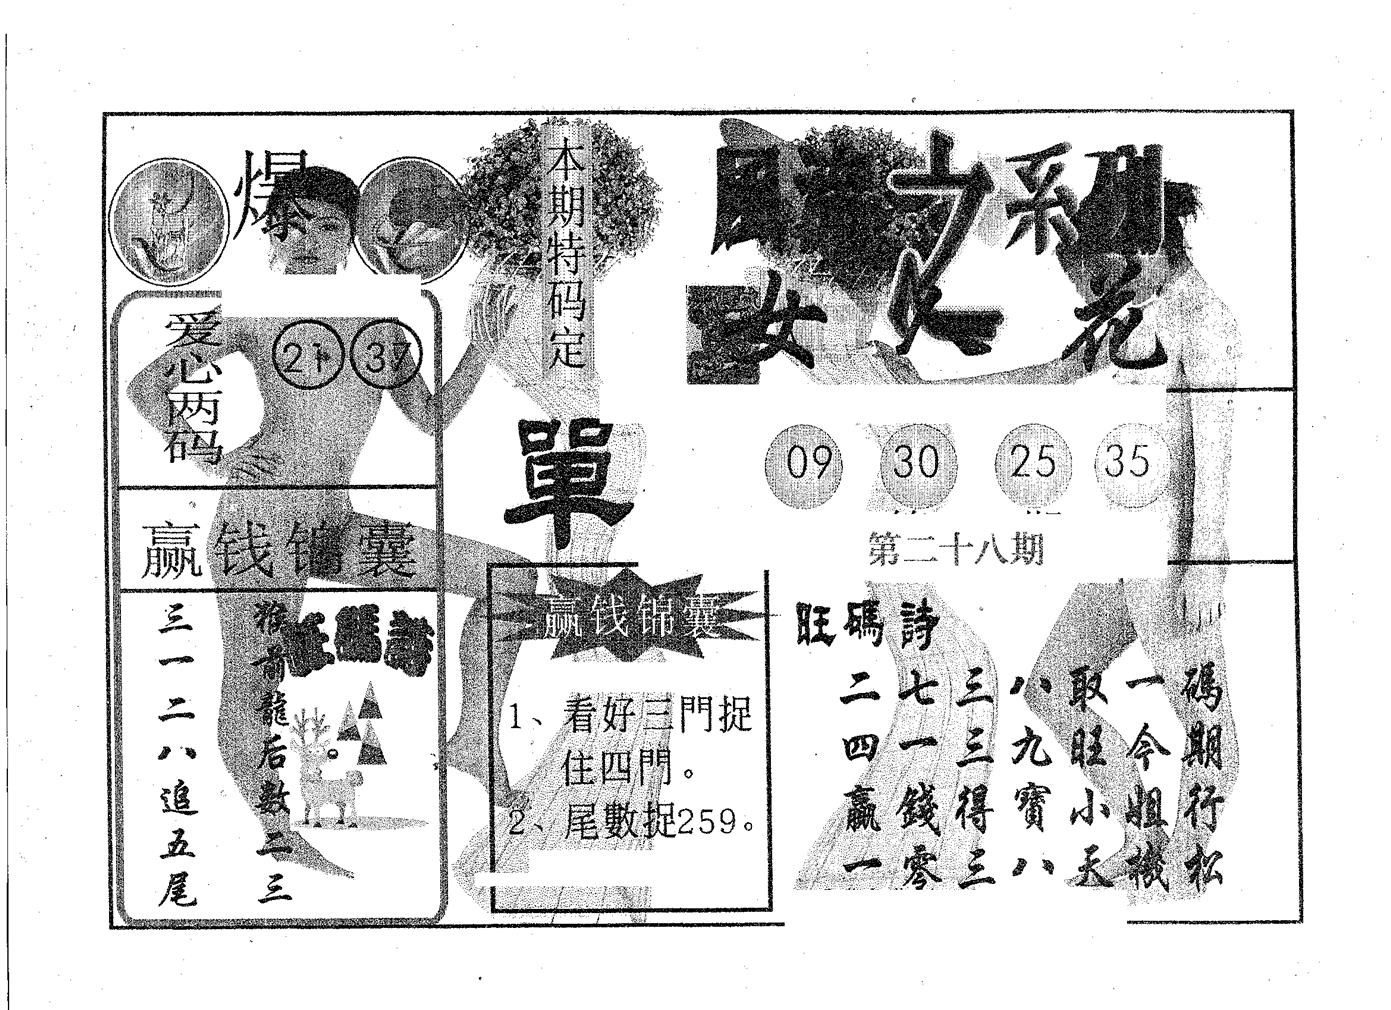 爆
本期特码定
單
爱心两码
21 37
赢钱锦囊
猴前龍后數二三
三一二八追五尾
旺碼詩
赢钱锦囊
1、看好三門捉
住四門。
2、尾數捉259。
之系列
女人花
09 30 25 35
第二十八期
旺碼詩
二七三八取一碼
四一三九旺今期
贏錢得寶小姐行
一零三八天機松